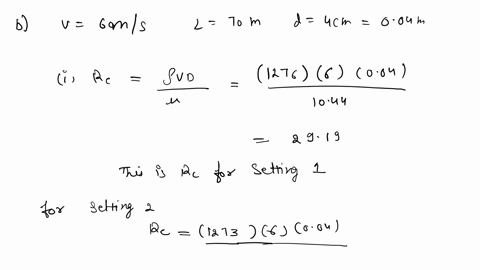 b) V = 60m/s L = 70 m d = 4cm = 0.04m
(i, Rc = ρVD / μ = (1276)(6)(0.04) / 10.44
= 29.19
This is Rc for Setting 1
for setting 2
Rc = (1273)(6)(0.04)